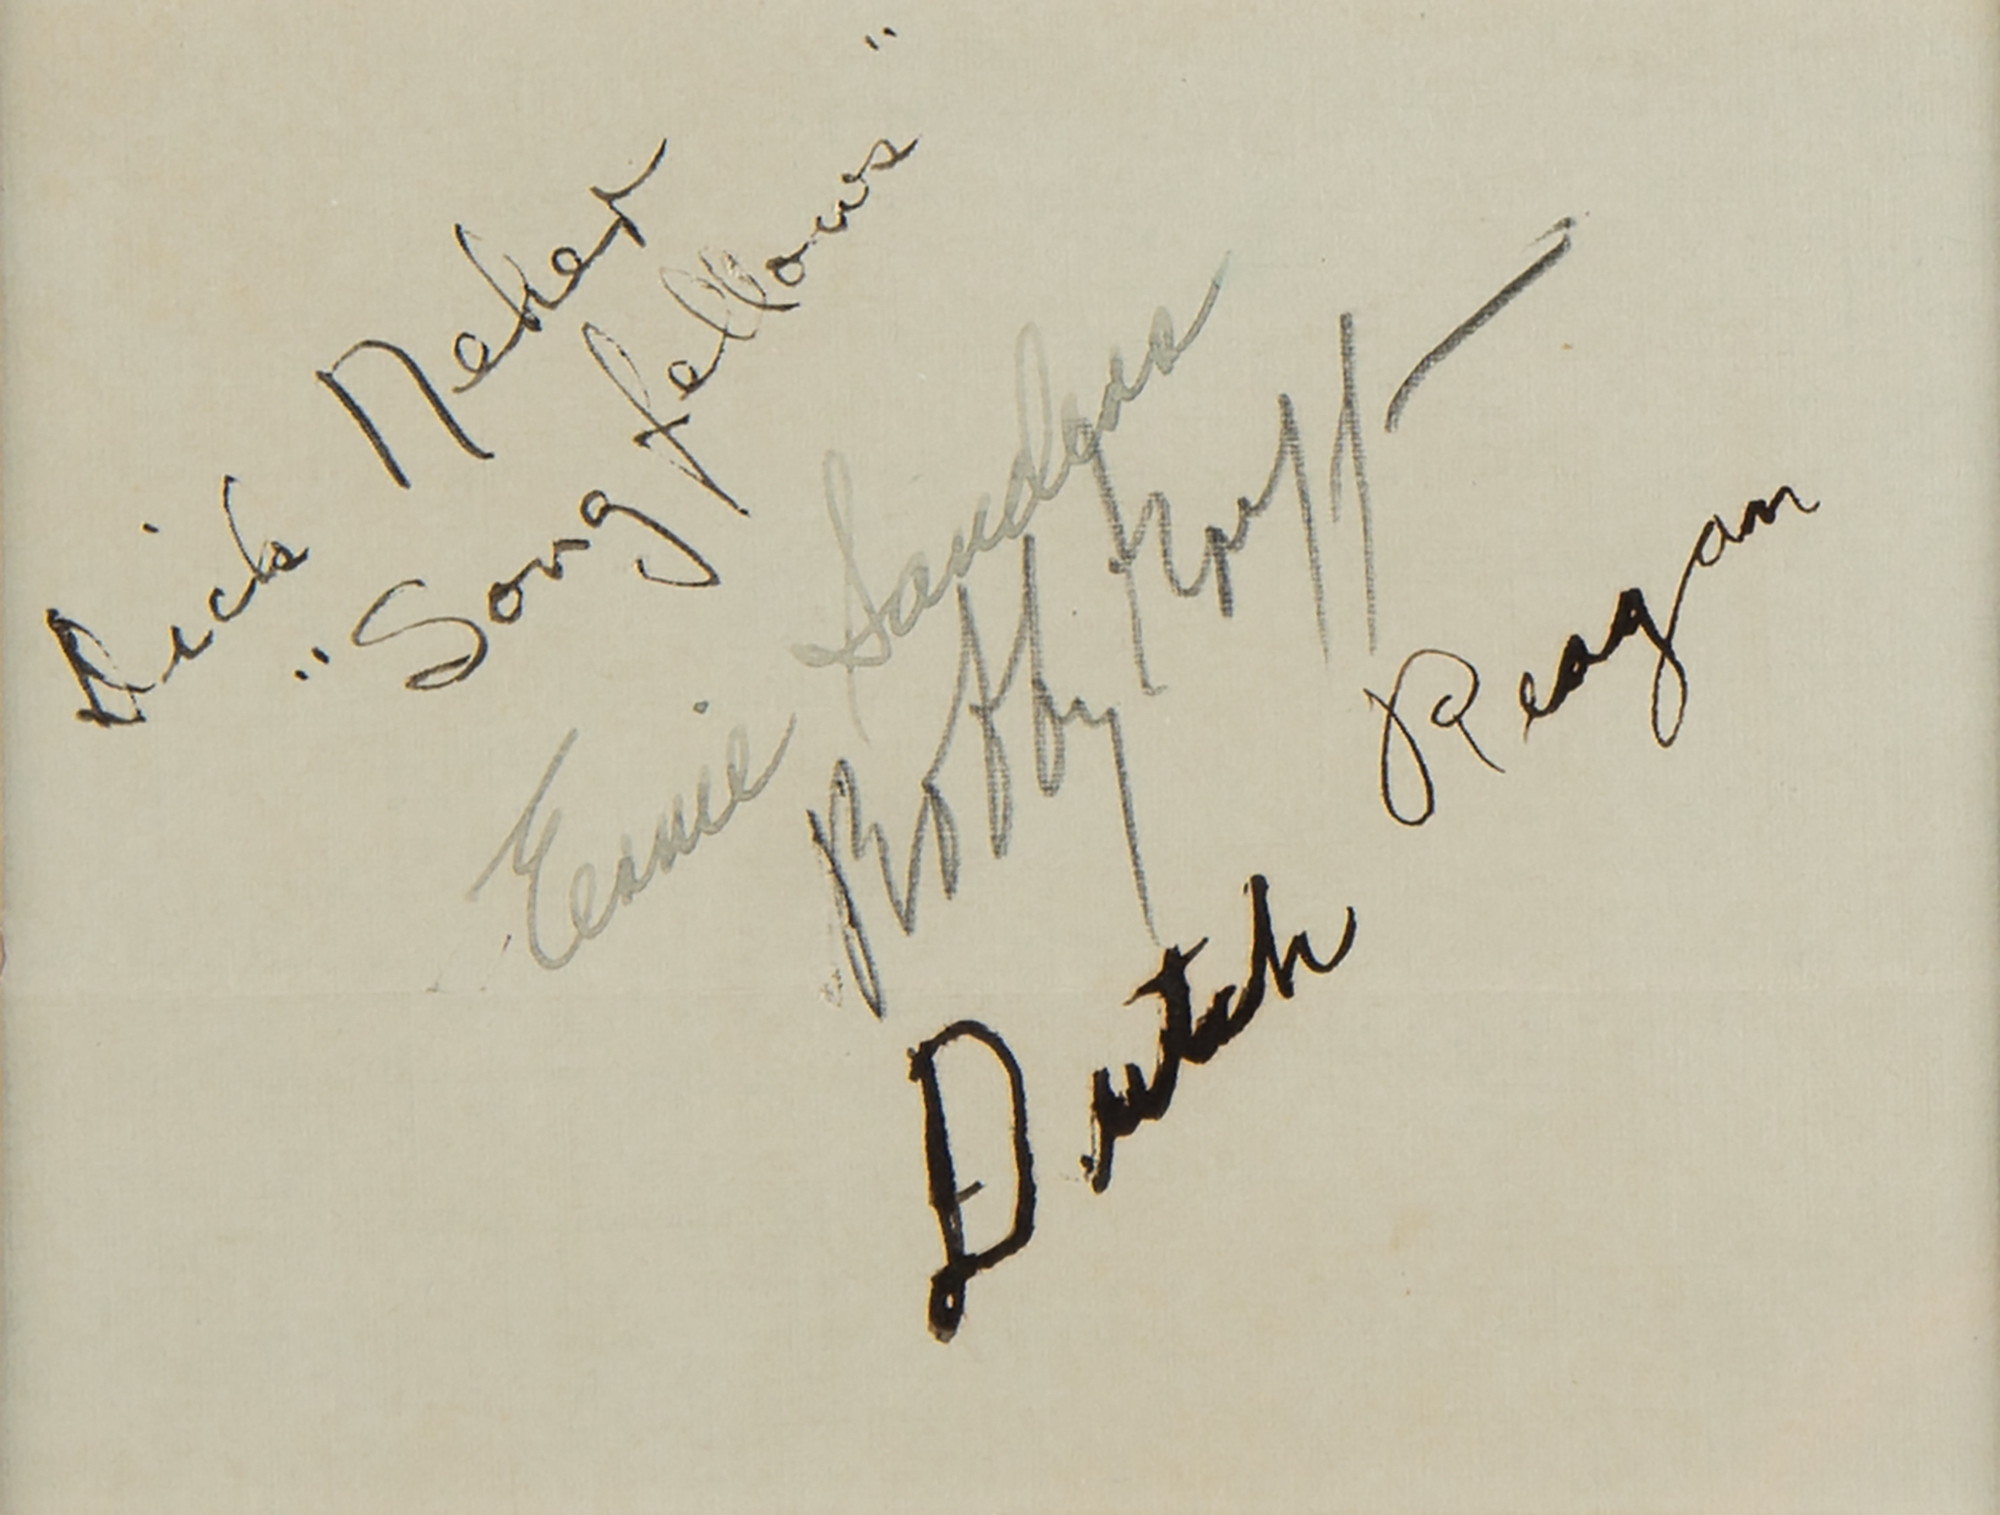 Dick Neher
"Song fellows"
Ernie Sanders
Bobby
Dutch Reagan